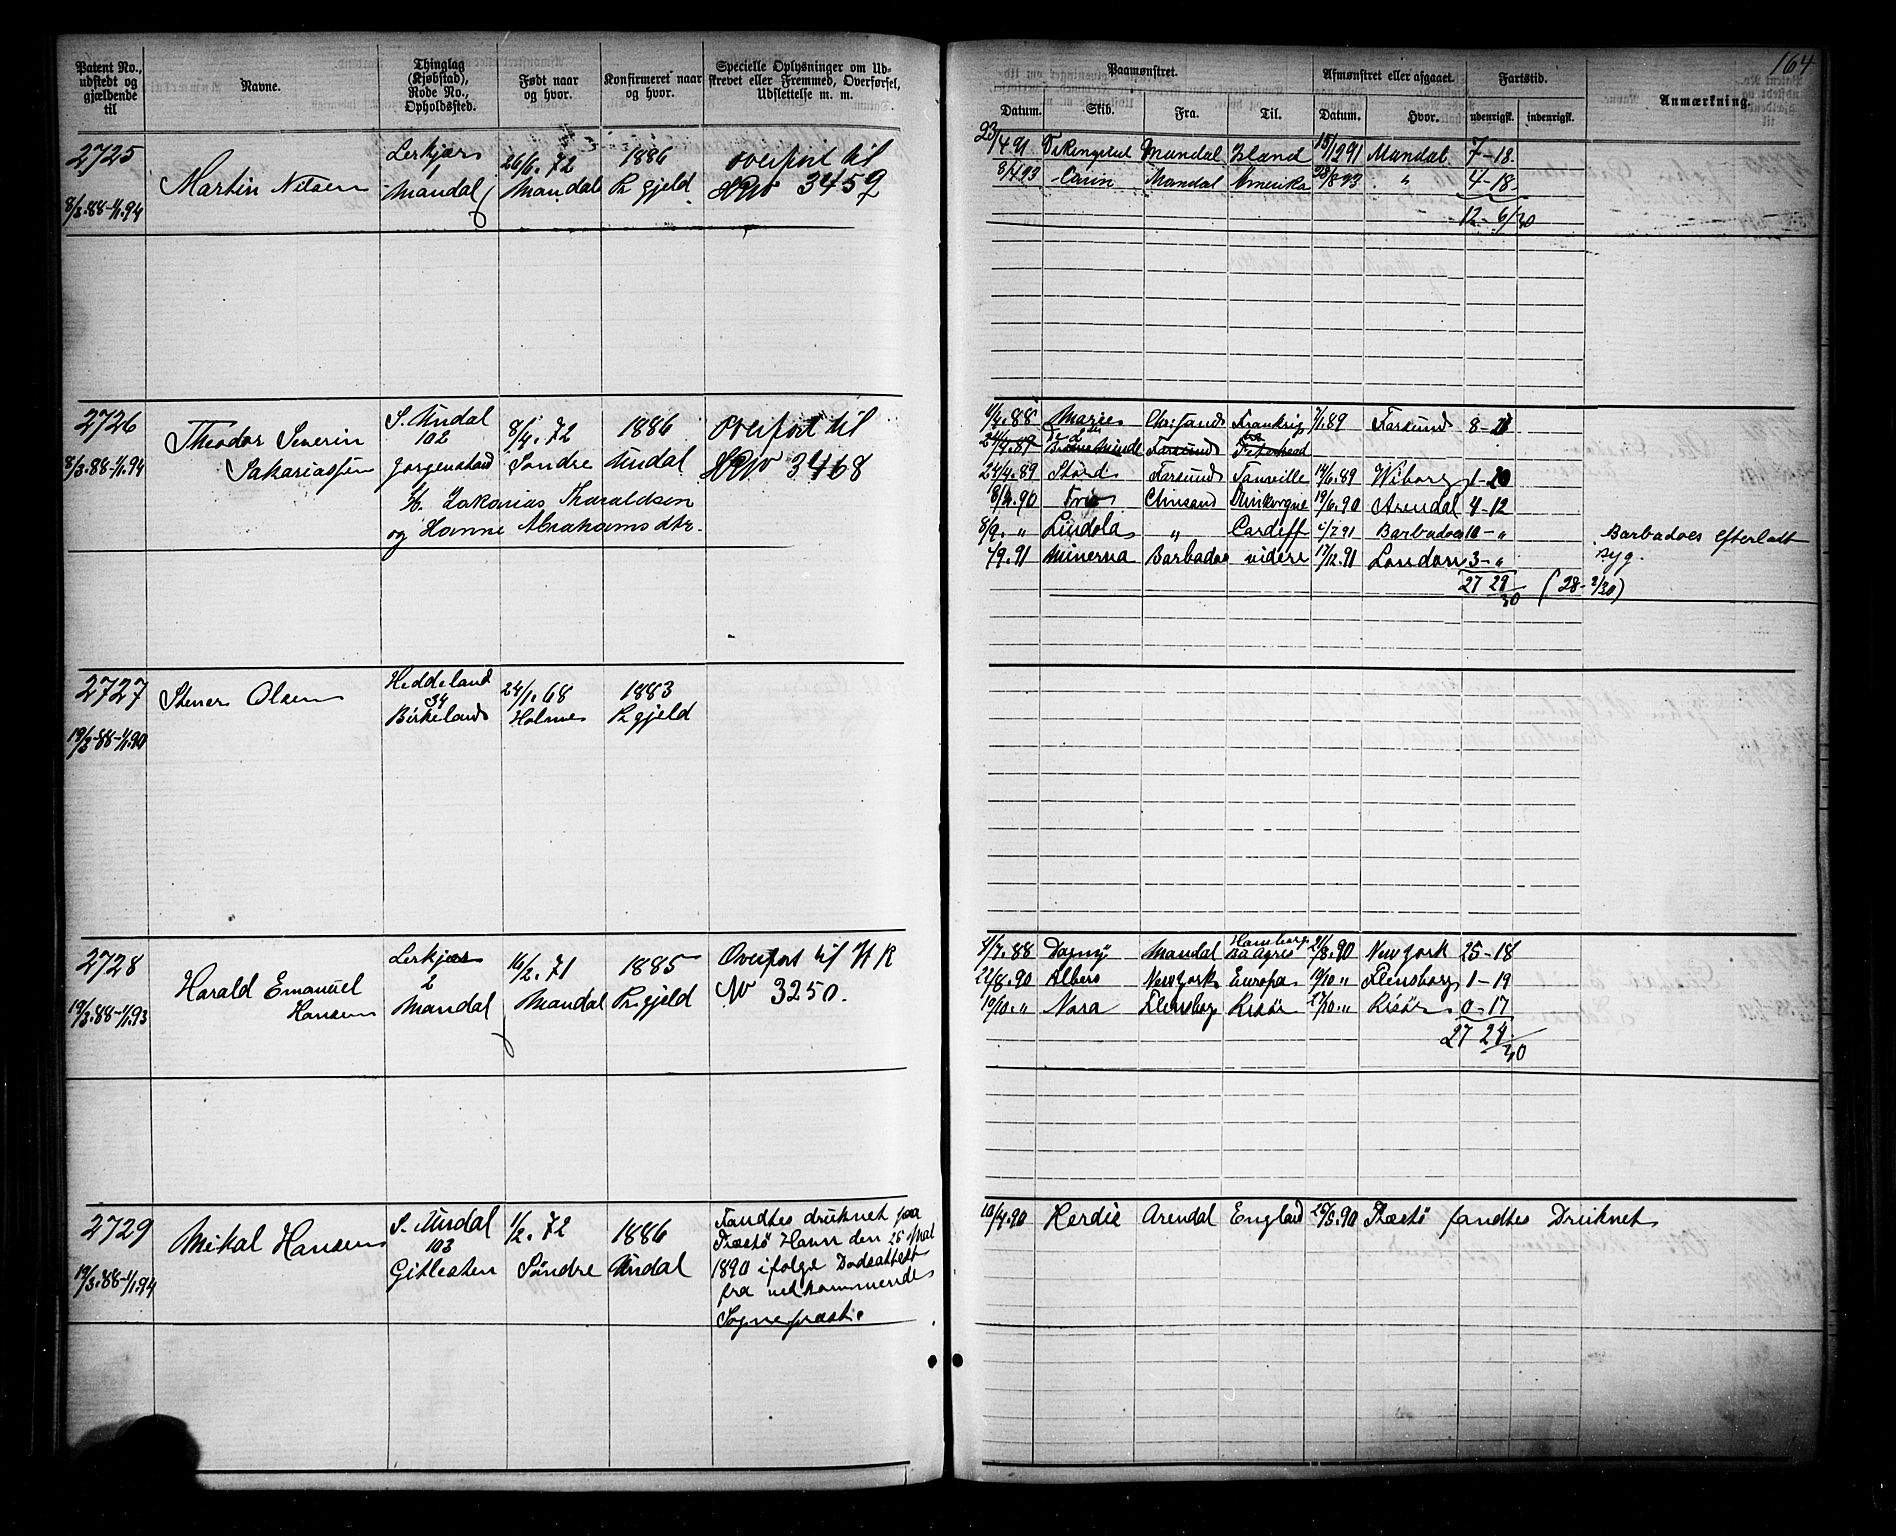 164
Patent No., udstedt og gjældende til
Navne.
Thinglag (Kjøbstad), Rode No., Opholdssted.
Født naar og hvor.
Konfirmeret naar og hvor.
Specielle Oplysninger om Udskrevet eller Fremmed, Overførsel, Udslettelse m. m.
Paamønstret.
Afmønstret eller afgaaet.
Fartstid.
Anmærkning.
Datum. Skib. Fra. Til. Datum. Hvor. udenrigsk. indenrigsk.
2725
8/3.88-1/1.94
Martin Nilsen
Lerkjær
1
Mandal
26/6.72
Mandal
1886
Pr gjeld
overført til
HR No 3459
23/4 91 Mandal Island 15/12 91 Mandal 7-18
8/4 93 Carin Mandal Amerika 28/8 93 " 4-18
12-6/30
2726
8/3.88-1/1.94
Theodor Severin
Sakariassen
S. Undal
102
Jørgenstad
8/4.72
Søndre
1886
Undal
Overført til
HR No 3468
H. Zakarias Tharaldsen
og Hanne Abrahamsdtr.
4/4.88 Marie Chrsand Frankrig 7/1.89 Farsund 8-28
24/4.89 Farsund
24/4.89 Stærd Farsund 14/6.89 Wiborg 1-20
8/4.90 Chrsand 19/6.90 Arendal 4-12
8/9. " Lindola " Cardiff 2/7 91 Barbados 10-" Barbadoes efterladt
syg.
4/9.91 Minerva Barbados videre 17/12.91 London 3-"
27 29/30 (28-2/30)
2727
19/3-88-1/1.90
Stener Olsen
Heddeland
34
Birkeland
24/1.68
Holme
1883
Pr gjeld
2728
19/3.88-1/1.93
Harald Emanuel
Hansen
Lerkjær
2
Mandal
16/2.71
Mandal
1885
Pr gjeld
Overført til HR
No 3250.
4/7.88 Dagny Mandal Hamborg
Bs Ayres 21/8.90 New York 25-18
22/8.90 Albers New York Europa 10/10 " Flensborg 1-19
10/10. " Nora Flensborg Risør 27/10. " Risør 0-17
27 24/30
2729
19/3.88-1/1.94
Mikal Hansen
S. Undal
103
Gitlesten
1/2.72
Søndre
1886
Undal
Fandtes druknet paa
Træstø Havn den 25 Mai
1890 ifølge Dødsattest
fra vedkommende
Sogneprest.
10/4.90 Herdis Arendal England 25/5.90 Træstø fandtes Druknet